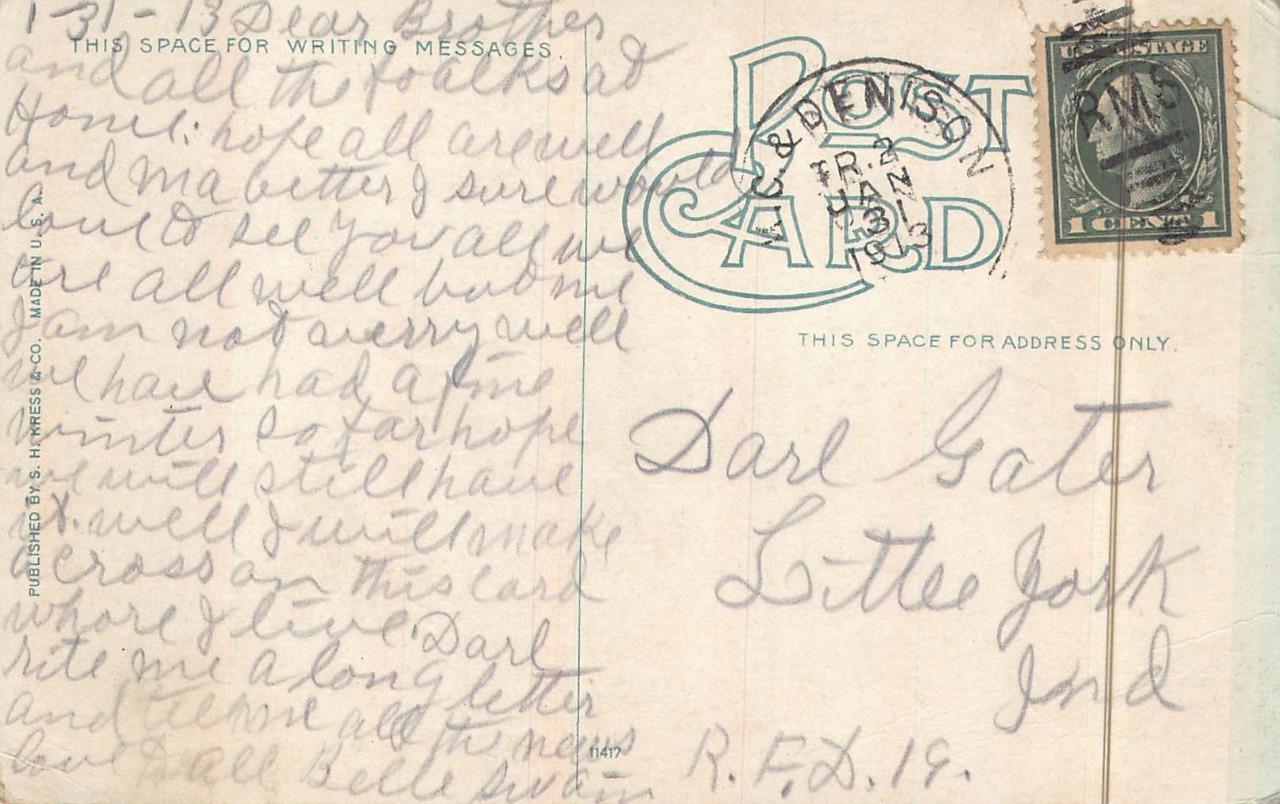 1-31-13 Dear Brother
THIS SPACE FOR WRITING MESSAGES.
and all the foalks at
Home: hope all are well
and ma better I sure would
love to see you all we
are all well but me
I am not verry well
we have had a fine
winter so far hope
we will still have
it. well I will make
a cross on this card
whore I live. Darl
rite me a long letter
and tell me all the news
love to all Belle Swain
PUBLISHED BY S. H. KRESS & CO. MADE IN U. S. A.
11417
POST
CARD
& DENISON
TR. 2
JAN
31
1913
RMS
U.S. POSTAGE
1 CENT 1
THIS SPACE FOR ADDRESS ONLY.
Darl Gater
Little York
Ind
R.F.D. 19.